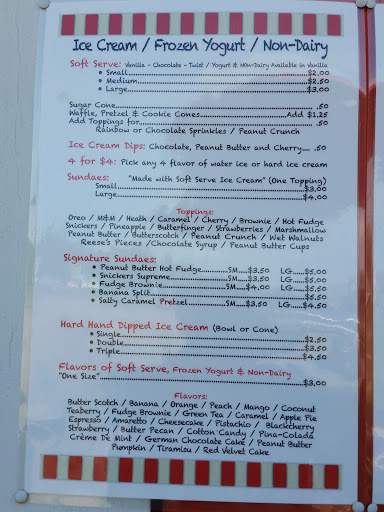 Ice Cream / Frozen Yogurt / Non-Dairy
Soft Serve: Vanilla - Chocolate - Twist / Yogurt & Non-Dairy Available in Vanilla
• Small $2.00
• Medium $2.50
• Large $3.00
Sugar Cone .50
Waffle, Pretzel & Cookie Cones Add $1.25
Add Toppings for .50
Rainbow or Chocolate Sprinkles / Peanut Crunch
Ice Cream Dips: Chocolate, Peanut Butter and Cherry .50
4 for $4: Pick any 4 flavor of water ice or hard ice cream
Sundaes: "Made with Soft Serve Ice Cream" (One Topping)
Small $3.00
Large $4.00
Toppings:
Oreo / M&M / Heath / Caramel / Cherry / Brownie / Hot Fudge
Snickers / Pineapple / Butterfinger / Strawberries / Marshmallow
Peanut Butter / Butterscotch / Peanut Crunch / Wet Walnuts
Reese's Pieces / Chocolate Syrup / Peanut Butter Cups
Signature Sundaes:
• Peanut Butter Hot Fudge SM $3.50 LG $5.00
• Snickers Supreme SM $3.50 LG $5.00
• Fudge Brownie SM $4.00 LG $5.50
• Banana Split $5.50
• Salty Caramel Pretzel SM $3.50 LG $4.50
Hard Hand Dipped Ice Cream (Bowl or Cone)
• Single $2.50
• Double $3.50
• Triple $4.50
Flavors of Soft Serve, Frozen Yogurt & Non-Dairy
"One Size" $3.00
Flavors:
Butter Scotch / Banana / Orange / Peach / Mango / Coconut
Teaberry / Fudge Brownie / Green Tea / Caramel / Apple Pie
Espresso / Amaretto / Cheesecake / Pistachio / Blackcherry
Strawberry / Butter Pecan / Cotton Candy / Pina-Colada
Crème De Mint / German Chocolate Cake / Peanut Butter
Pumpkin / Tiramisu / Red Velvet Cake